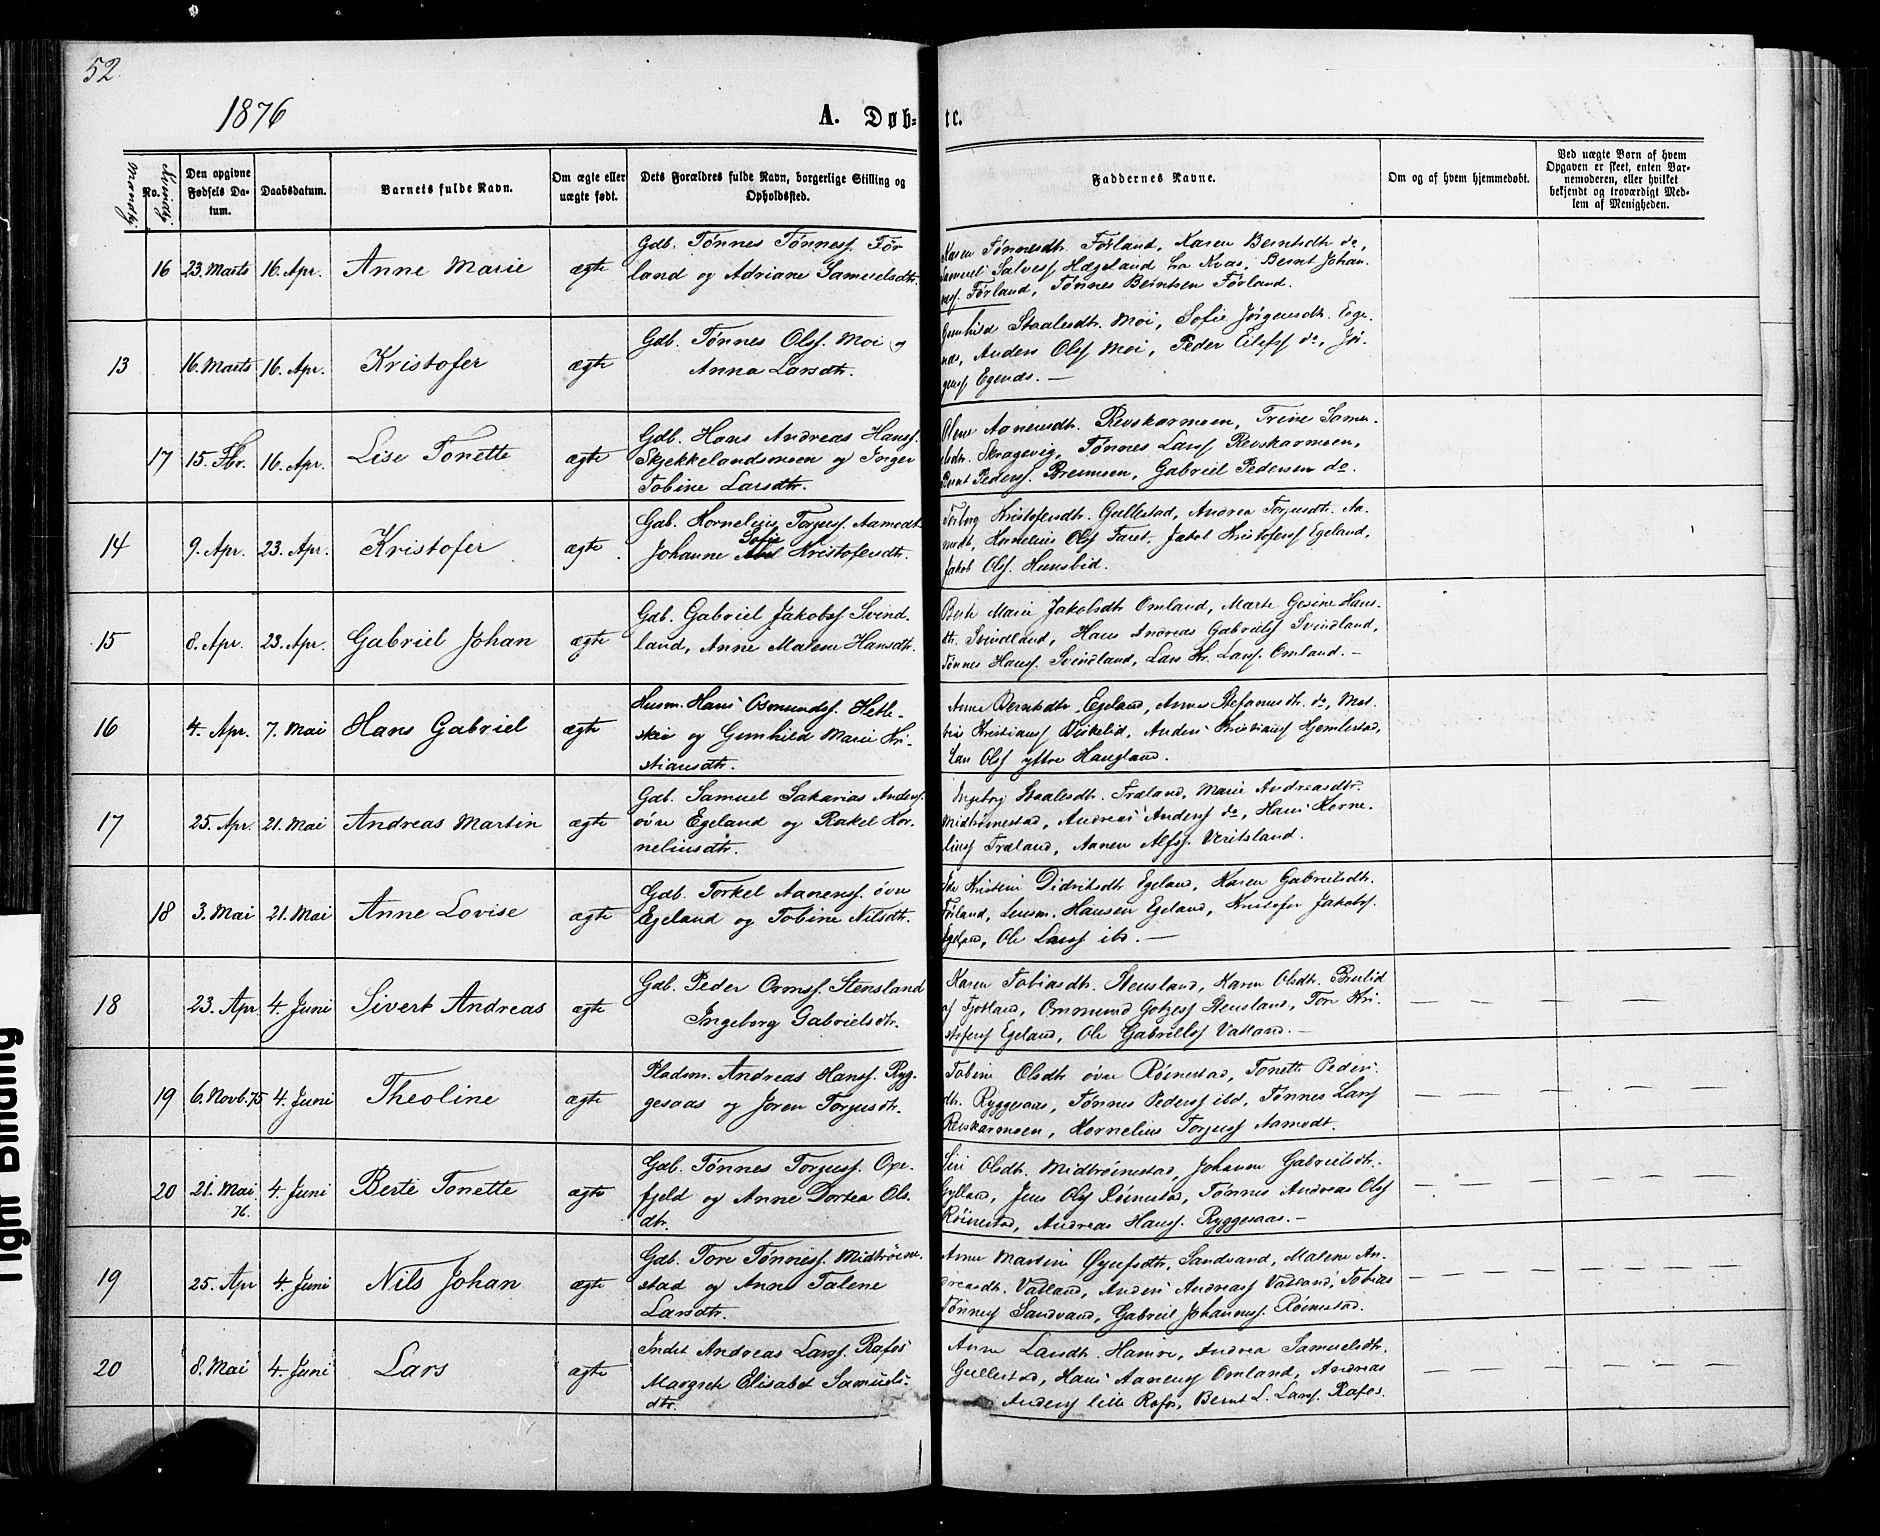 52.
1876
A. Døb-
te.
Mandkj.
No.
Kvindkj.
Den opgivne Fødsels Da-
tum.
Daabsdatum.
Barnets fulde Navn.
Om ægte eller
uægte født.
Dets Forældres fulde Navn, borgerlige Stilling og
Opholdssted.
Faddernes Navne.
Om og af hvem hjemmedøbt.
Ved uægte Børn af hvem
Opgaven er skeet, enten Bar-
nemoderen, eller hvilket
bekjendt og troværdigt Med-
lem af Menigheden.
16 23. Marts 16. Apr. Anne Marie ægte
Gdb. Tønnes Tønness. Før
land og Adriane Samuelsdtr.
Karen Tønnesdtr. Førland, Karen Berntsdtr do,
Samuel Salvess Hægeland fra Kvas, Bernt Johan
ness. Førland, Tønnes Berntsen Førland.
13 16. Marts 16. Apr. Kristofer ægte
Gdb. Tønnes Olss. Moi og
Anna Larsdtr.
Gunhild Staalesdtr. Moi, Sofie Jørgensdtr. Ege-
næs, Anders Olss Moi, Peder Eilefss do, Jør-
genss Egenæs. —
17 15. Fbr. 16. Apr. Lise Tonette ægte
Gdb. Hans Andreas Hanss.
Skjekkelandsmoen og Inger
Tobine Larsdtr.
Olene Aanensdtr. Revskarmoen, Trine Samu-
elsdtr. Skragevig, Tønnes Larss Revskarmoen,
Bernt Pederss. Bremoen, Gabriel Pedersen do.
14 9. Apr. 23. Apr. Kristofer ægte
Gdb. Kornelius Torguss. Aamodt
Sofie
Johanne Kristofersdtr.
Torborg Kristofersdtr. Gullestad, Andrea Torgusdtr. Aa-
modt, Kornelius Olss Faret, Jakob Kristoferss Egeland,
Jakob Olss. Hunsbid.
15 8. Apr. 23. Apr. Gabriel Johan ægte
Gdb. Gabriel Jakobss Svind-
land, Anne Malene Hansdtr.
Berte Marie Jakobsdtr Omland, Marte Gesine Hans-
dtr. Svindland, Hans Andreas Gabrielss Svindland,
Tønnes Hanss. Svindland, Lars Kr. Larss. Omland. —
16 4. Apr. 7. Mai Hans Gabriel ægte
Husm. Hans Osmundss. Hetle-
skei og Gunhild Marie Kri-
stiansdtr.
Anne Berntsdtr. Egeland, Anne Stefanusdtr. do, Mat-
bis Kristianss Birkelid, Anders Kristianss Hjemlestad,
Lars Olss yttre Haugland.
17 25. Apr. 21. Mai Andreas Martin ægte
Gdb. Samuel Sakarias Anderss.
øvre Egeland og Rakel Kor-
neliusdtr.
Ingeborg Staalesdtr. Træland, Marie Andreasdtr.
Midtrøinestad, Andreas Anderss do, Hans Korne-
liuss Træland, Aanen Alfss. Veritsland.
18 3. Mai 21. Mai Anne Lovise ægte
Gdb. Torkel Aanenss. øvre
Egeland og Tobine Nilsdtr.
Ida Kristine Didriksdtr Egeland, Karen Gabrielsdtr.
Førland, Lensm. Hansen Egeland, Kristofer Jakobss.
Egeland, Ole Larss ibd. —
18 23. Apr 4. Juni Sivert Andreas ægte
Gdb. Peder Ormss. Stensland
Ingeborg Gabrielsdtr.
Karen Tobiasdtr. Stensland, Karen Olsdtr. Brulid
af Fjotland, Ommund Gotzess Stensland, Tore Kri-
stoferss Egeland, Ole Gabrielss Vatland. —
19 6. Novb. 75 4. Juni Theoline ægte
Pladsm. Andreas Hanss. Ryg-
gesaas og Joren Torgusdtr.
Tobine Olsdtr øvre Røinestad, Tonette Peders-
dtr. Ryggesaas, Tønnes Pederss ibd, Tønnes Larss
Revskarmoen, Kornelius Torguss Aamodt.
20 21. Mai 76. 4. Juni Berte Tonette ægte
Gdb. Tønnes Torguss. Ope-
fjeld og Anne Dortea Ols-
dtr.
Siri Olsdtr. Midtrøinestad, Johanne Gabrielsdtr.
Gylland, Jens Olss Røinestad, Tønnes Andreas Olss
Røinestad, Andreas Hanss. Ryggesaas. —
19 25. Apr 4. Juni Nils Johan ægte
Gdb. Tore Tønness. Midtrøine-
stad og Anne Talene
Larsdtr.
Anne Martine Øyufsdtr. Sandvand, Malene An-
dreasdtr. Vatland, Anders Andreass Vatland, Tobias
Tønness Sandvand, Gabriel Johanness. Røinestad.
20 8. Mai 4. Juni Lars ægte
Inds Andreas Larss. Rafos
Margrete Elisabet Samuels-
dtr.
Anne Larsdtr. Hamre, Andrea Samuelsdtr.
Gullestad, Hans Aanenss Omland, Andreas
Anderss lille Rafos, Bernt L. Larss. Rafos.
Tight Binding